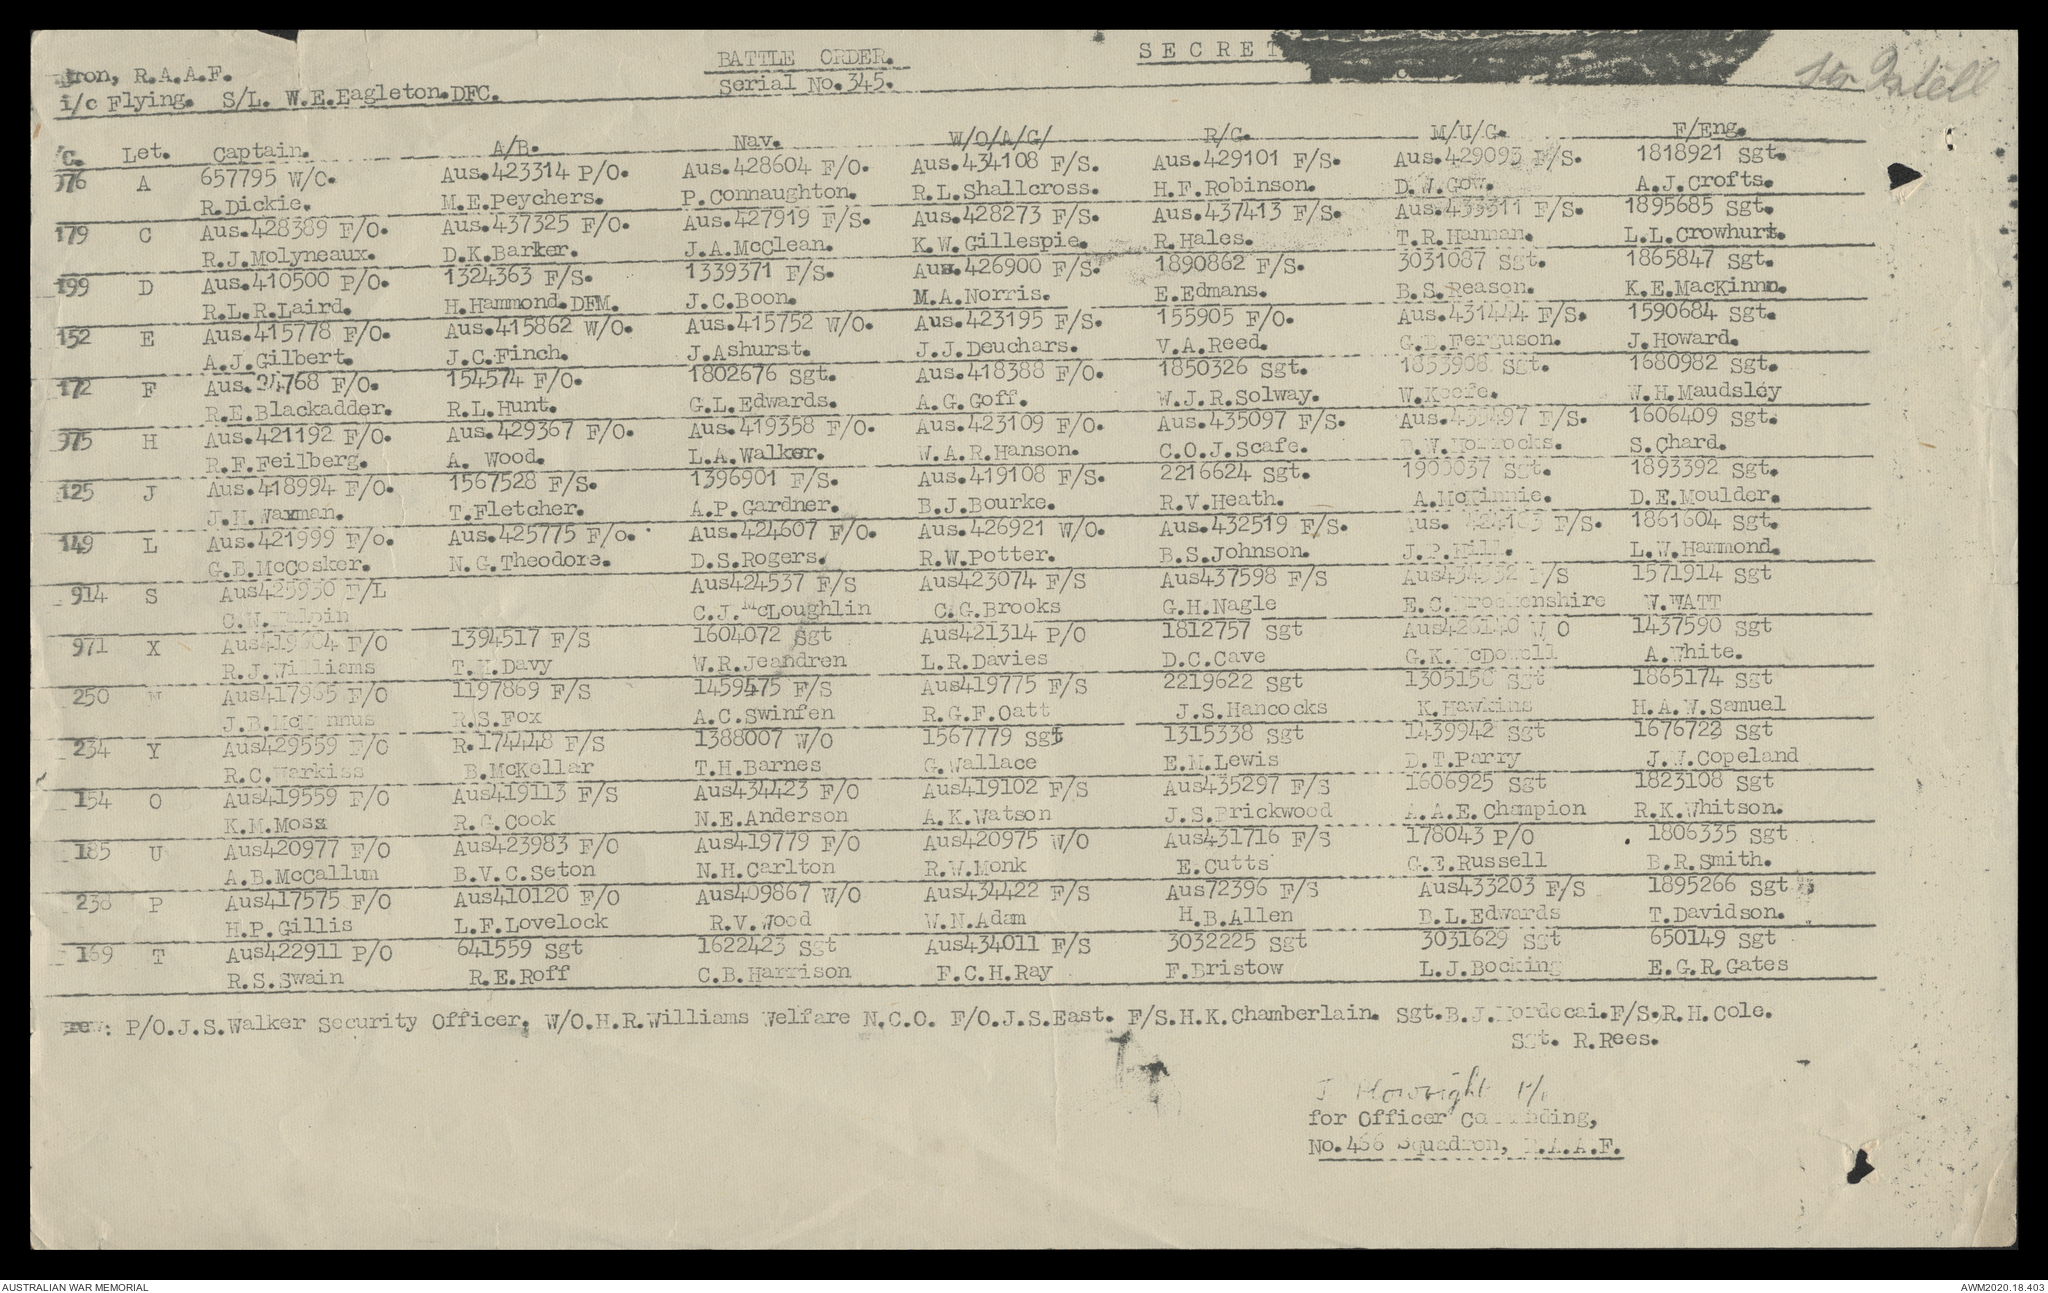 BATTLE ORDER. SECRET
dron, R.A.A.F.
i/c Flying. S/L. W.E.Eagleton.DFC. Serial No.345.
/C. Let. Captain. A/B. Nav. W/O/A/G/ R/G. M/U/G. F/Eng.
976 A 657795 W/C. Aus.423314 P/O. Aus.428604 F/O. Aus.434108 F/S. Aus.429101 F/S. Aus.429093 F/S. 1818921 Sgt.
R.Dickie. M.E.Peychers. P.Connaughton. R.L.Shallcross. H.F.Robinson. D.W.Gow. A.J.Crofts.
179 C Aus.428389 F/O. Aus.437325 F/O. Aus.427919 F/S. Aus.428273 F/S. Aus.437413 F/S. Aus.433311 F/S. 1895685 Sgt.
R.J.Molyneaux. D.K.Barker. J.A.McClean. K.W.Gillespie. R.Hales. T.R.Hannan. L.L.Crowhurt.
199 D Aus.410500 P/O. 1324363 F/S. 1339371 F/S. Aus.426900 F/S. 1890862 F/S. 3031087 Sgt. 1865847 Sgt.
R.L.R.Laird. H.Hammond.DFM. J.C.Boon. M.A.Norris. E.Edmans. B.S.Reason. K.E.MacKinno.
152 E Aus.415778 F/O. Aus.415862 W/O. Aus.415752 W/O. Aus.423195 F/S. 155905 F/O. Aus.431444 F/S. 1590684 Sgt.
A.J.Gilbert. J.C.Finch. J.Ashurst. J.J.Deuchars. V.A.Reed. G.D.Ferguson. J.Howard.
172 F F/O. 154574 F/O. 1802676 Sgt. Aus.418388 F/O. 1850326 Sgt. 1853908 Sgt. 1680982 Sgt.
R.E.Blackadder. R.L.Hunt. G.L.Edwards. A.G.Goff. W.J.R.Solway. W.Keefe. W.H.Maudsley
975 H Aus.421192 F/O. Aus.429367 F/O. Aus.419358 F/O. Aus.423109 F/O. Aus.435097 F/S. F/S. 1606409 Sgt.
R.F.Feilberg. A. Wood. L.A.Walker. W.A.R.Hanson. C.O.J.Scafe. S.Chard.
125 J Aus.418994 F/O. 1567528 F/S. 1396901 F/S. Aus.419108 F/S. 2216624 Sgt. Sgt. 1893392 Sgt.
J.H.Waxman. T.Fletcher. A.P.Gardner. B.J.Bourke. R.V.Heath. A.McKinnie. D.E.Moulder.
149 L Aus.421999 F/O. Aus.425775 F/O. Aus.424607 F/O. Aus.426921 W/O. Aus.432519 F/S. Aus. F/S. 1861604 Sgt.
G.B.McCosker. N.G.Theodore. D.S.Rogers. R.W.Potter. B.S.Johnson. J.P.Hill. L.W.Hammond.
914 S Aus425930 F/L Aus424537 F/S Aus423074 F/S Aus437598 F/S F/S 1571914 Sgt
C.W. C.J.McLoughlin C.G.Brooks G.H.Nagle W.WATT
971 X F/O 1394517 F/S 1604072 Sgt Aus421314 P/O 1812757 Sgt W/O 1437590 Sgt
R.J.Williams T.H.Davy W.R.Jeandren L.R.Davies D.C.Cave G.K.McDowell A.White.
250 Aus417965 F/O 1197869 F/S 1459475 F/S Aus419775 F/S 2219622 Sgt 1305158 Sgt 1865174 Sgt
R.S.Fox A.C.Swinfen R.G.F.Oatt J.S.Hancocks K.Hawkins H.A.W.Samuel
234 Y Aus429559 F/O R.174448 F/S 1388007 W/O 1567779 Sgt 1315338 Sgt 1439942 Sgt 1676722 Sgt
R.C.Warkiss B.McKellar T.H.Barnes G.Wallace E.M.Lewis D.T.Parry J.W.Copeland
154 O Aus419559 F/O Aus419113 F/S Aus434423 F/O Aus419102 F/S Aus435297 F/S 1606925 Sgt 1823108 Sgt
K.M.Moss R.G.Cook N.E.Anderson A.K.Watson J.S.Brickwood A.A.E.Champion R.K.Whitson.
185 U Aus420977 F/O Aus423983 F/O Aus419779 F/O Aus420975 W/O Aus431716 F/S 178043 P/O 1806335 Sgt
A.B.McCallum B.V.C.Seton N.H.Carlton R.W.Monk E.Cutts G.E.Russell B.R.Smith.
238 P Aus417575 F/O Aus410120 F/O Aus409867 W/O Aus434422 F/S Aus72396 F/S Aus433203 F/S 1895266 Sgt
H.P.Gillis L.F.Lovelock R.V.Wood W.N.Adam H.B.Allen B.L.Edwards T.Davidson.
169 T Aus422911 P/O 641559 Sgt 1622423 Sgt Aus434011 F/S 3032225 Sgt 3031629 Sgt 650149 Sgt
R.S.Swain R.E.Roff C.B.Harrison F.C.H.Ray F.Bristow L.J.Bocking E.G.R.Gates
rew: P/O.J.S.Walker Security Officer. W/O.H.R.Williams Welfare N.C.O. F/O.J.S.East. F/S.H.K.Chamberlain. Sgt.B.J.Mordecai.F/S.R.H.Cole.
Sgt. R.Rees.
for Officer Commanding,
No.466 Squadron, R.A.A.F.
AUSTRALIAN WAR MEMORIAL AWM2020.18.403